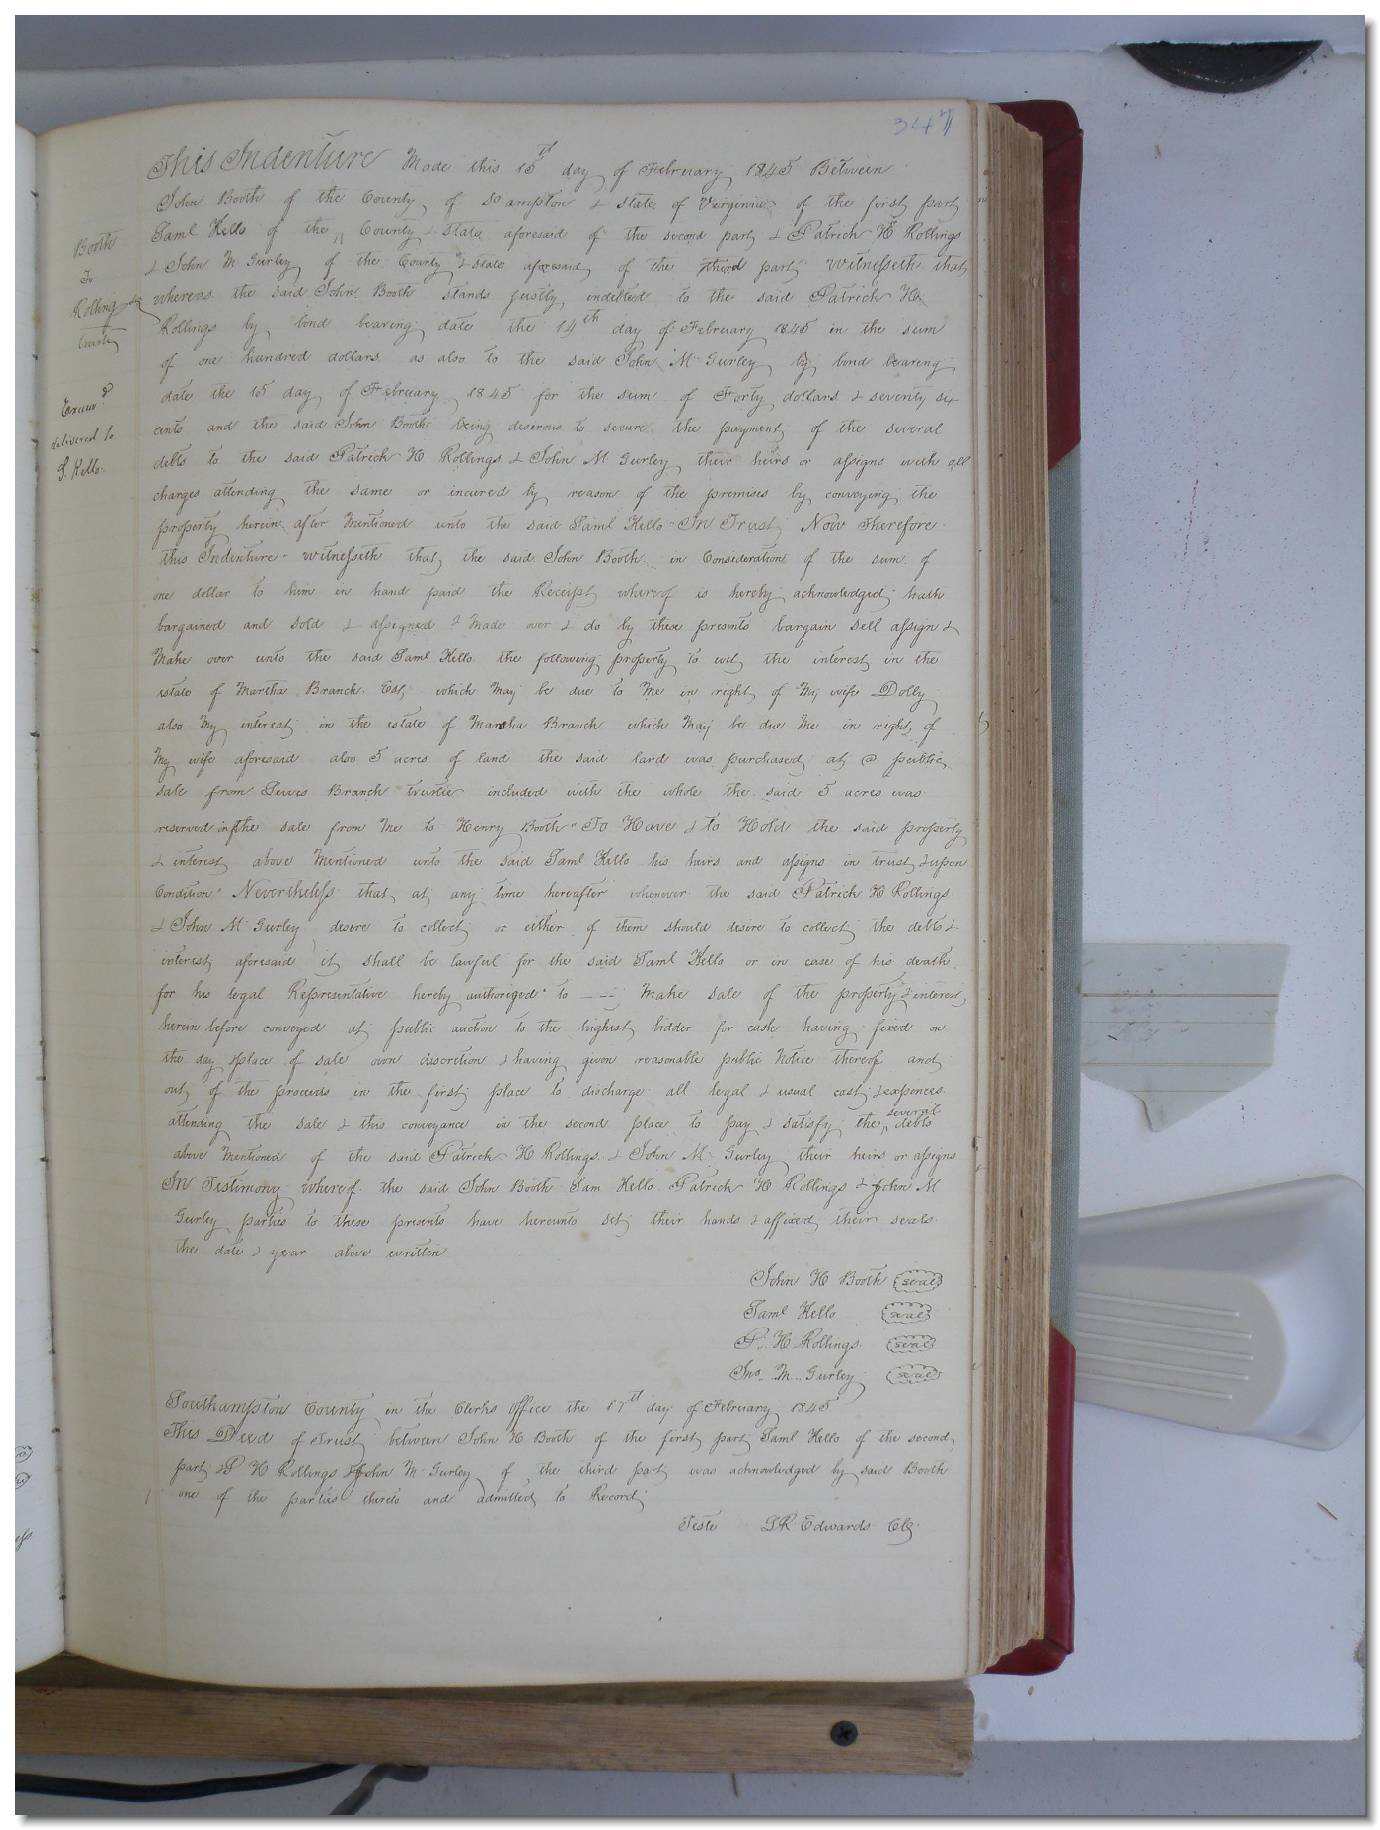 347
This Indenture Made this 15th day of February 1845 Between
John Booth of the County of So ampton & state of Virginia of the first part
Saml Kello of the County & State aforesaid of the second part & Patrick H Rollings
& John M Gurley of the County & state aforesaid of the third part Witnesseth that
whereas the said John Booth stands justly indebted to the said Patrick H
Rollings by bond bearing date the 14th day of February 1845 in the sum
of one hundred dollars as also to the said John M Gurley by bond bearing
date the 15 day of February 1845 for the sum of Forty dollars & seventy six
cents and the said John Booth being desirous to secure the payment of the several
debts to the said Patrick H Rollings & John M Gurley their heirs or assigns with all
charges attending the same or incured by reason of the premises by conveying the
property herein after Mentioned unto the said Saml Kello In Trust Now Therefore
this Indenture witnesseth that the said John Booth in Consideration of the sum of
one dollar to him in hand paid the Receipt whereof is hereby acknowledged hath
bargained and sold & assigned & Made over & do by these presents bargain sell assign &
Make over unto the said Saml Kello the following property to wit the interest in the
estate of Martha Branch Est, which May be due to Me in right of My wife Dolly
also My interest in the estate of Martha Branch which May be due Me in right of
My wife aforesaid also 5 acres of land the said land was purchased at a public
sale from Lewis Branch trustee included with the whole the said 5 acres was
reserved in the sale from Me to Henry Booth To Have & to Hold the said property
& interest above Mentioned unto the said Saml Kello his heirs and assigns in trust & upon
Condition Nevertheless that at any time hereafter whenever the said Patrick H Rollings
& John M Gurley desire to collect or either of them should desire to collect the debts &
interest aforesaid it shall be lawful for the said Saml Kello or in case of his death
for his legal Representative hereby authorized to ---- Make sale of the property & interest
herein before conveyed at public auction to the highest bidder for cash having fixed on
the day & place of sale own discretion & having given reasonable public Notice thereof and
out of the proceeds in the first place to discharge all legal & usual cost & expences
attending the sale & this conveyance in the second place to pay & satisfy the several debts
above Mentioned of the said Patrick H Rollings & John M Gurley their heirs or assigns
In Testimony whereof the said John Booth Sam Kello Patrick H Rollings & John M
Gurley parties to these presents have hereunto set their hands & affixed their seals
the date & year above written
John H Booth seal
Saml Kello seal
P. H Rollings seal
Jno. M. Gurley seal
Southampton County in the Clerks Office the 17th day of February 1845
This Deed of Trust between John H Booth of the first part Saml Kello of the second
part & P H Rollings & John M Gurley of the third part was acknowledged by said Booth
one of the parties thereto and admitted to Record
Teste LR Edwards Clk
Booth
To
Rollings
trustee
Examd &
delivered to
S. Kello